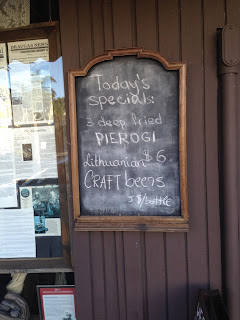 DRAUGAS NEWS
Today's
specials:
3 deep fried
PIEROGI
$6
Lithuanian
CRAFT beers
5$/bottle